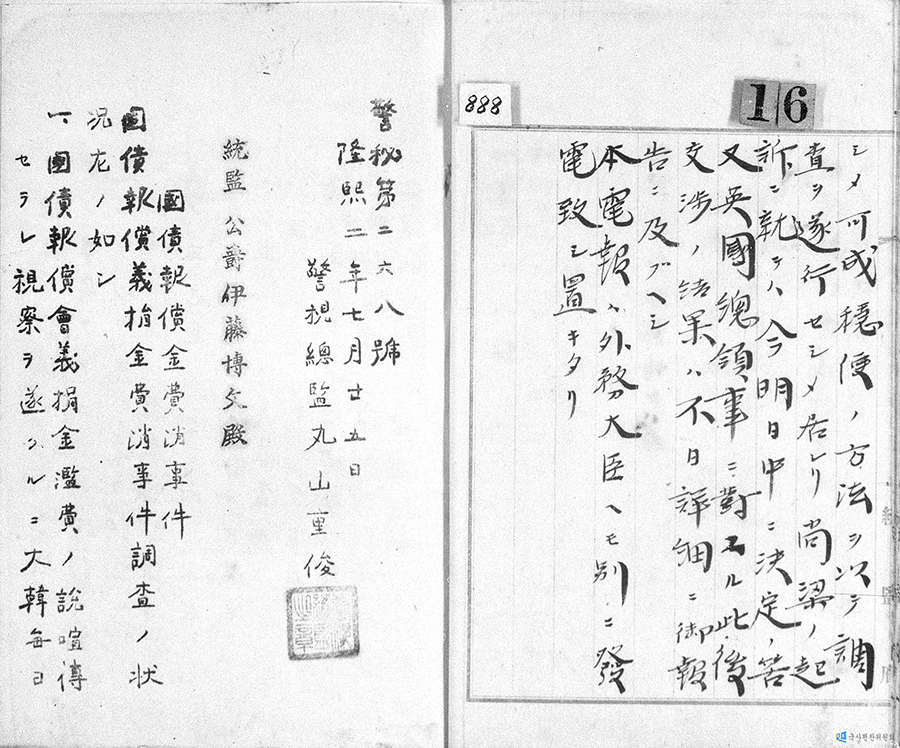 16
888
シメ可成穩便ノ方法ヲ以テ調
査ヲ遂行セシメ居レリ尚梁ノ起
訴ニ就テハ今明日中ニ決定ノ筈
又英國總領事ニ對スル此後
交渉ノ結果ハ不日詳細ニ御報
告ニ及ブヘシ
本電報ハ外務大臣ヘモ別ニ發
電致シ置キタリ
警秘第二六八號
隆熙二年七月廿五日
警視總監丸山重俊
統監 公爵伊藤博文殿
國債報償金費消事件
國債報償義捐金費消事件調査ノ状
況左ノ如シ
一、國債報償會義捐金濫費ノ説喧傳
セラレ視察ヲ遂クルニ大韓每日
국사편찬위원회